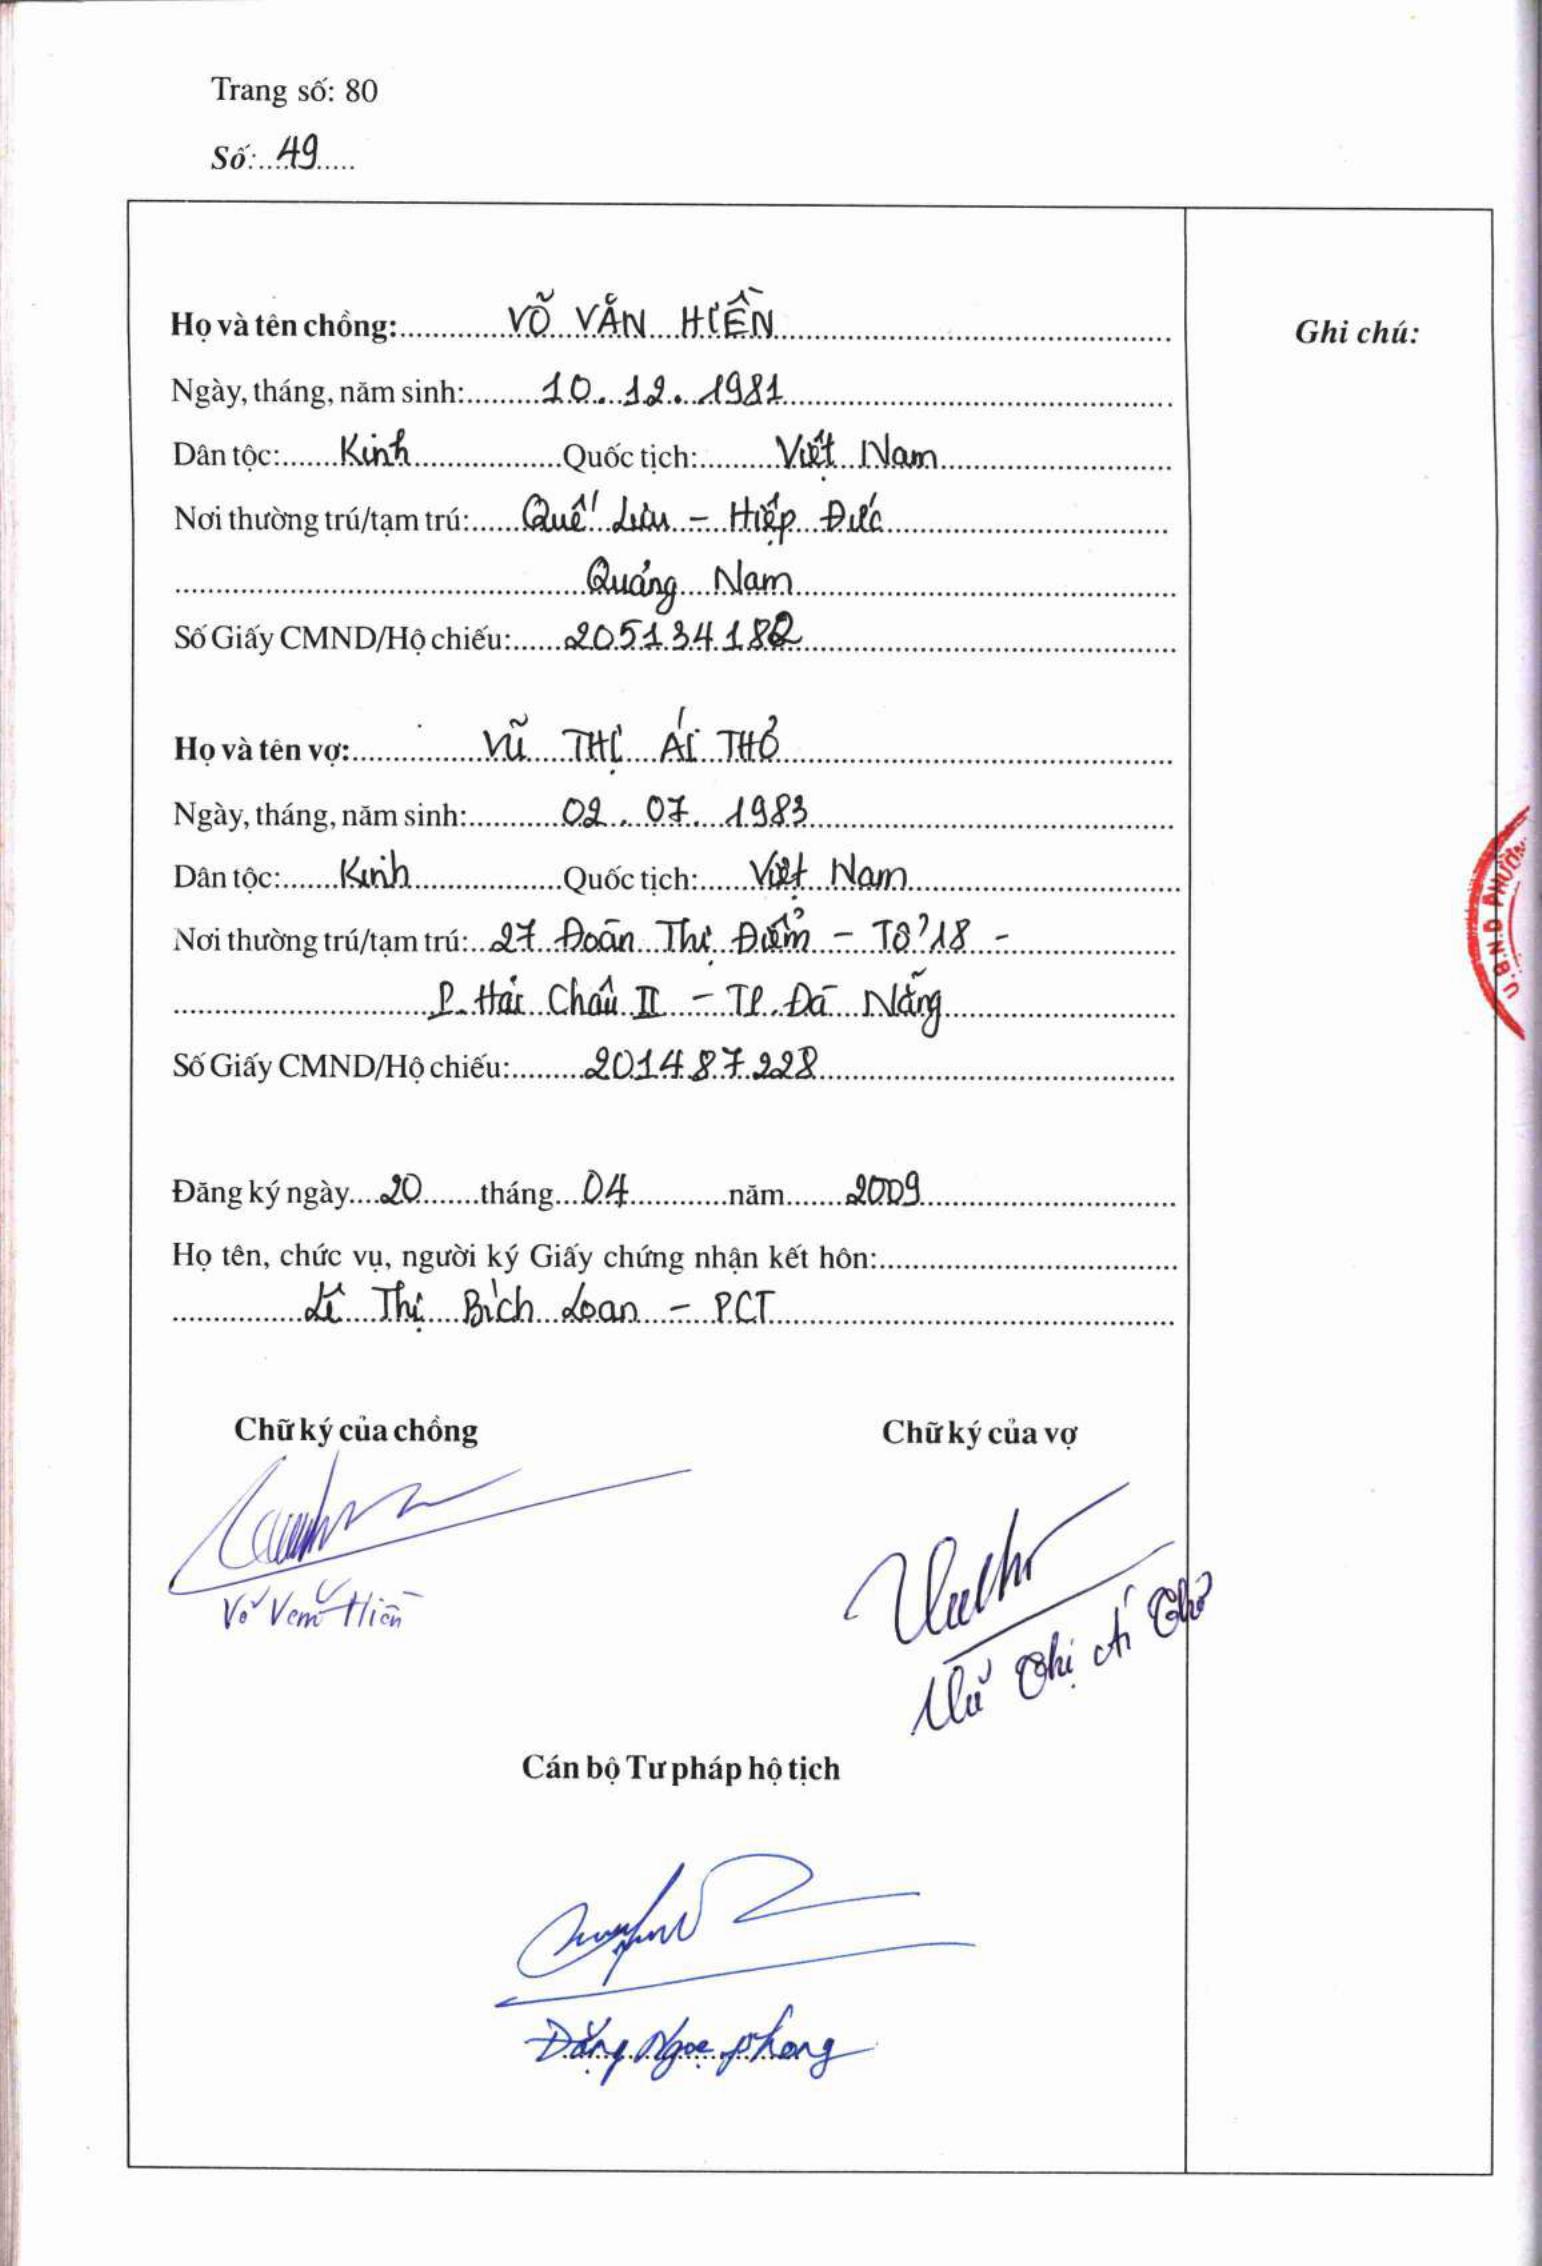 Trang số: 80
Số: 49
Họ và tên chồng: VÕ VĂN HIỀN
Ghi chú:
Ngày, tháng, năm sinh: 10. 12. 1981
Dân tộc: Kinh Quốc tịch: Việt Nam
Nơi thường trú/tạm trú: Quế Lưu - Hiệp Đức
Quảng Nam
Số Giấy CMND/Hộ chiếu: 205134182
Họ và tên vợ: VŨ THỊ ÁI THỎ
Ngày, tháng, năm sinh: 02. 07. 1983
Dân tộc: Kinh Quốc tịch: Việt Nam
Nơi thường trú/tạm trú: 27 Đoàn Thị Điểm - Tổ 18 -
P. Hải Châu II - TP. Đà Nẵng
Số Giấy CMND/Hộ chiếu: 201487228
Đăng ký ngày 20 tháng 04 năm 2009
Họ tên, chức vụ, người ký Giấy chứng nhận kết hôn:
Lê Thị Bích Loan - PCT
Chữ ký của chồng Chữ ký của vợ
Võ Văn Hiền
Vũ Thị Ái Thỏ
Cán bộ Tư pháp hộ tịch
Đặng Ngọc Phong
U.B.N.D PHƯỜN